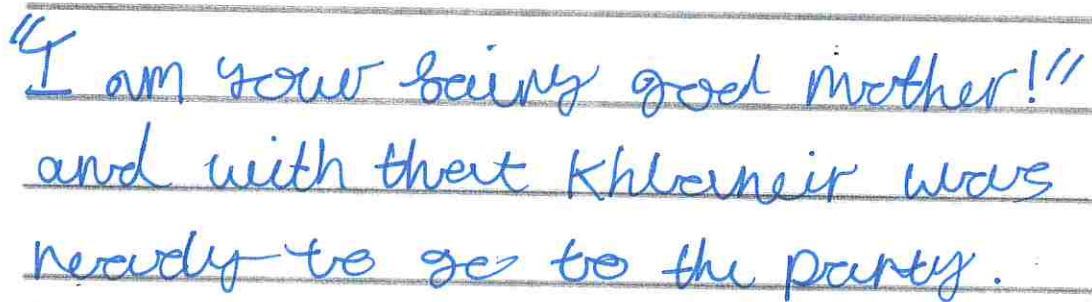 "I am your fairy god mother!"
and with that Khloneir was
ready to go to the party.